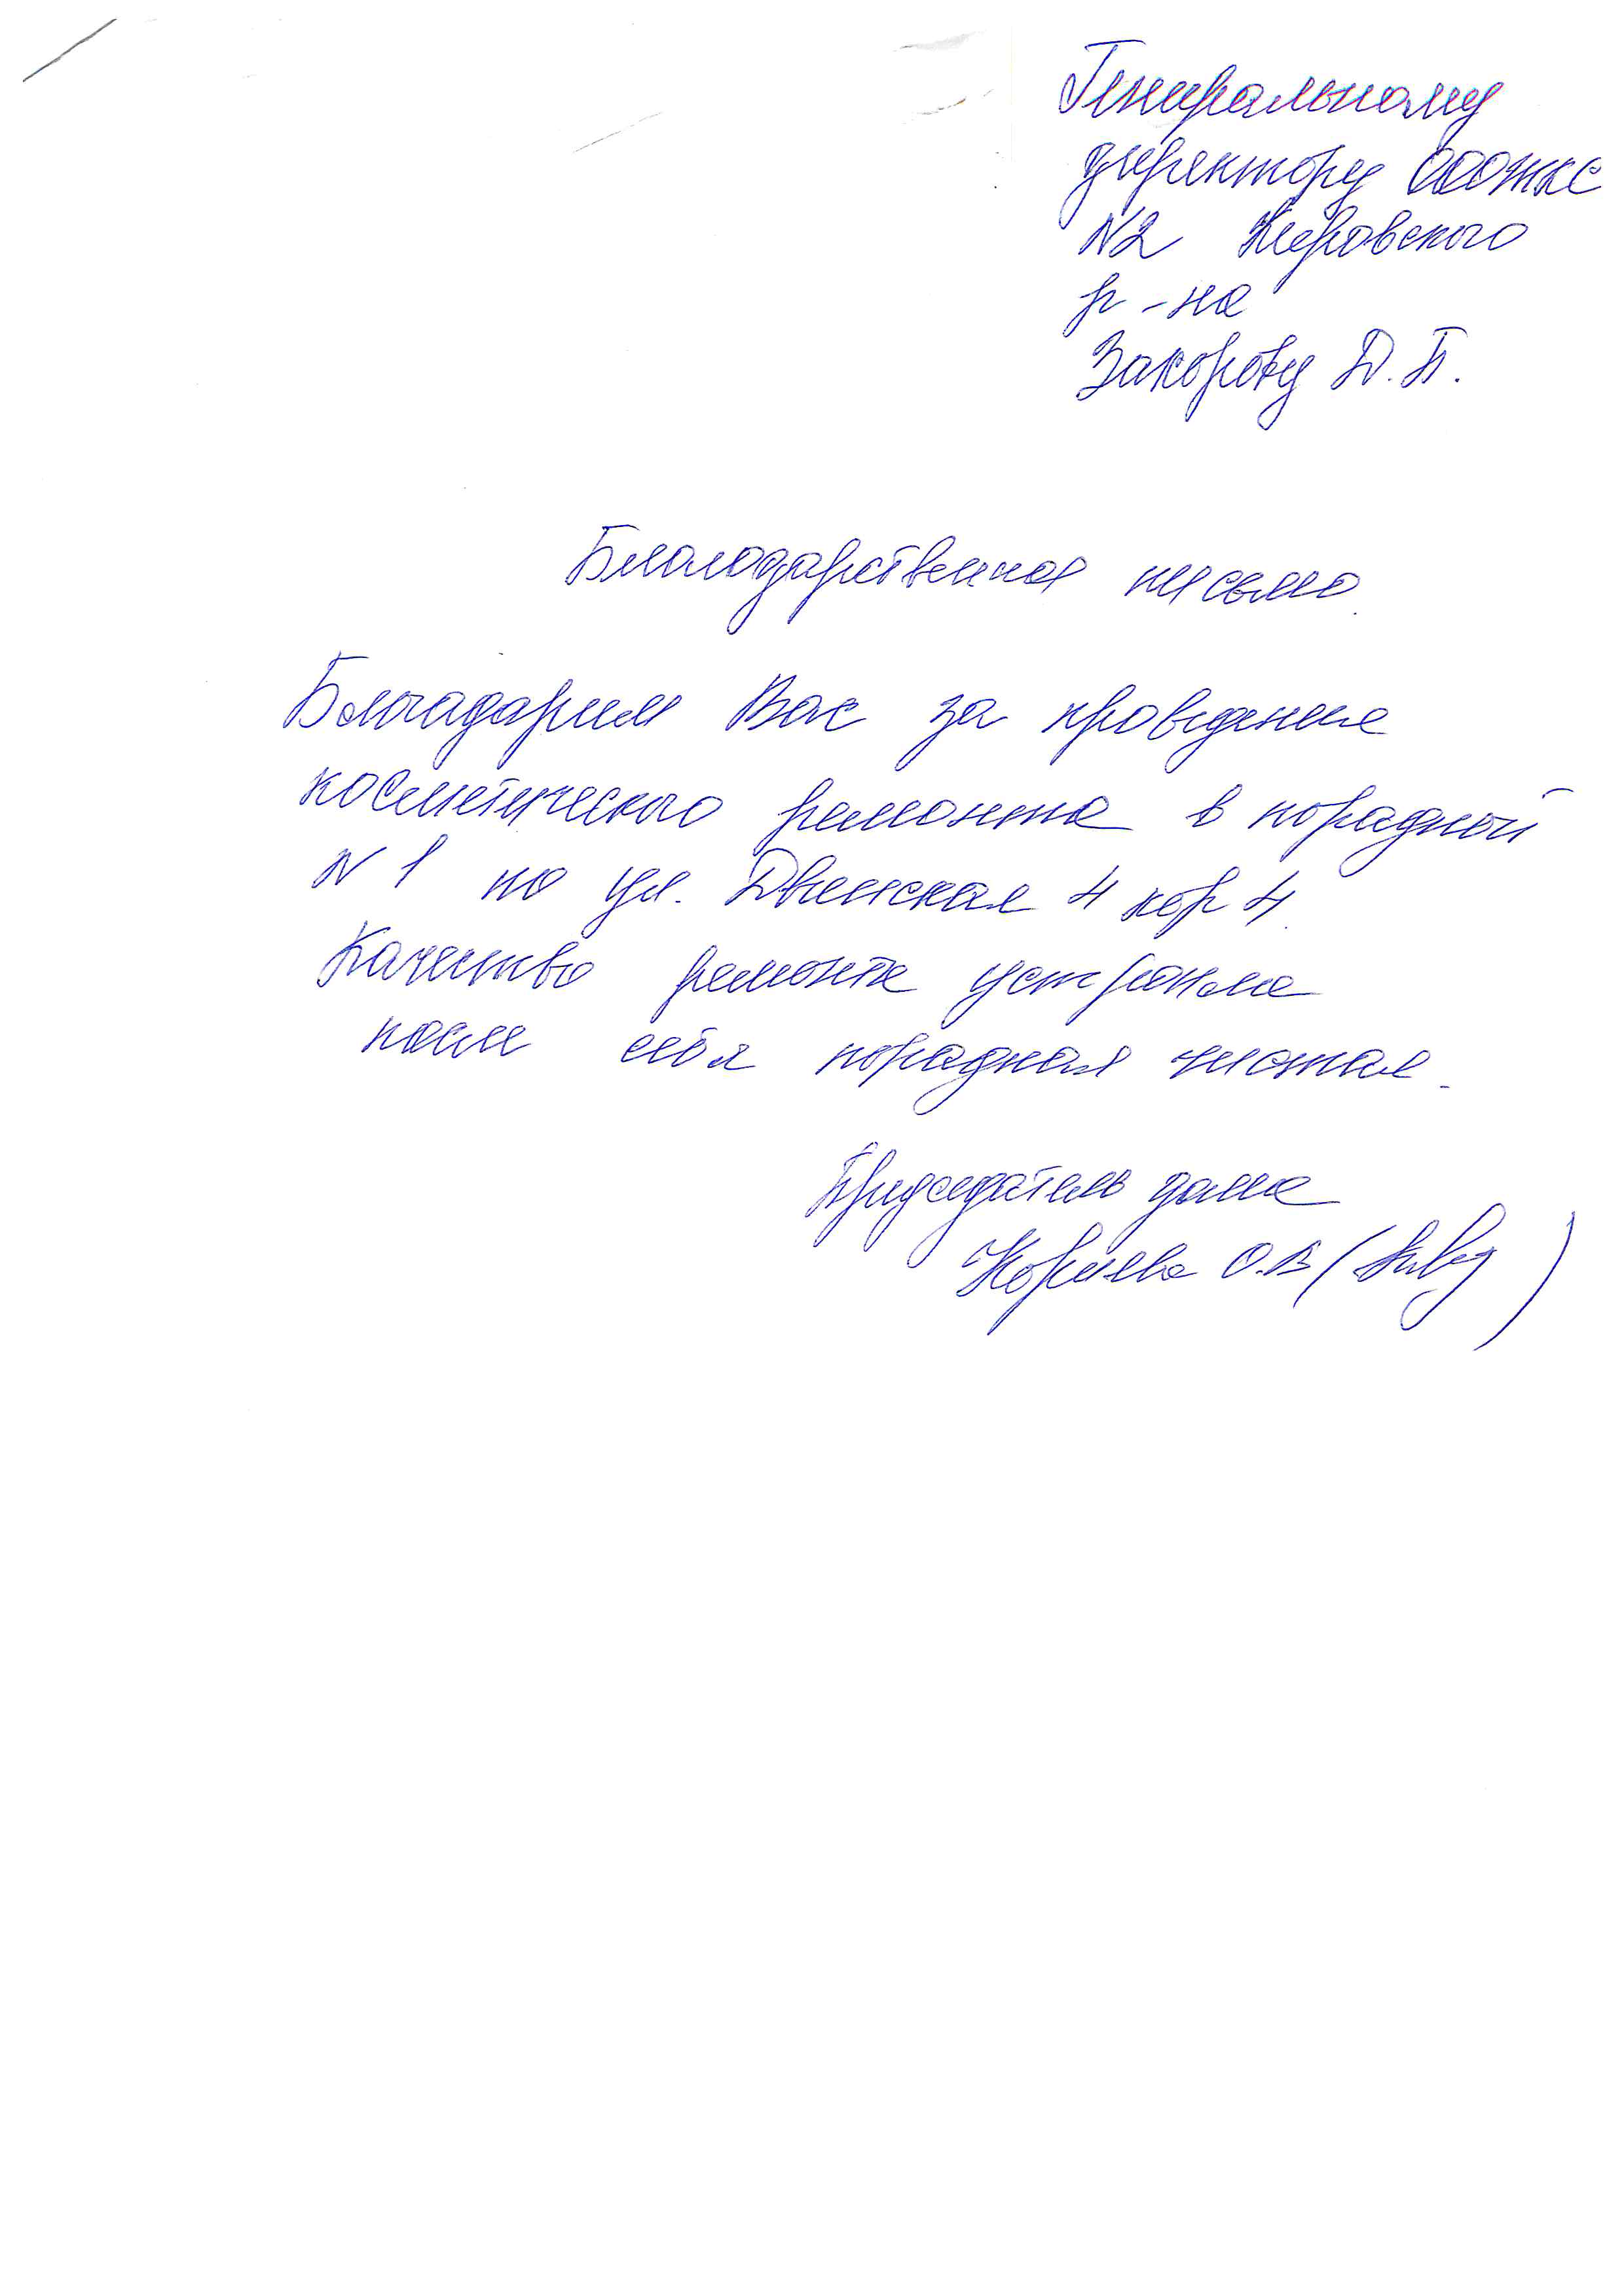 Генеральному
директору ОООЖКС
N2 Кировского
р-на
Закорову Д.П.
Благодарственная письмо
Благадарим Вас за проведение
косметического ремонта в порадной
N 1 по ул. Двинская 4 кор 4.
Качество ремонта устроила
после себя порадная чистая.
Председатель дома
О.В (
)